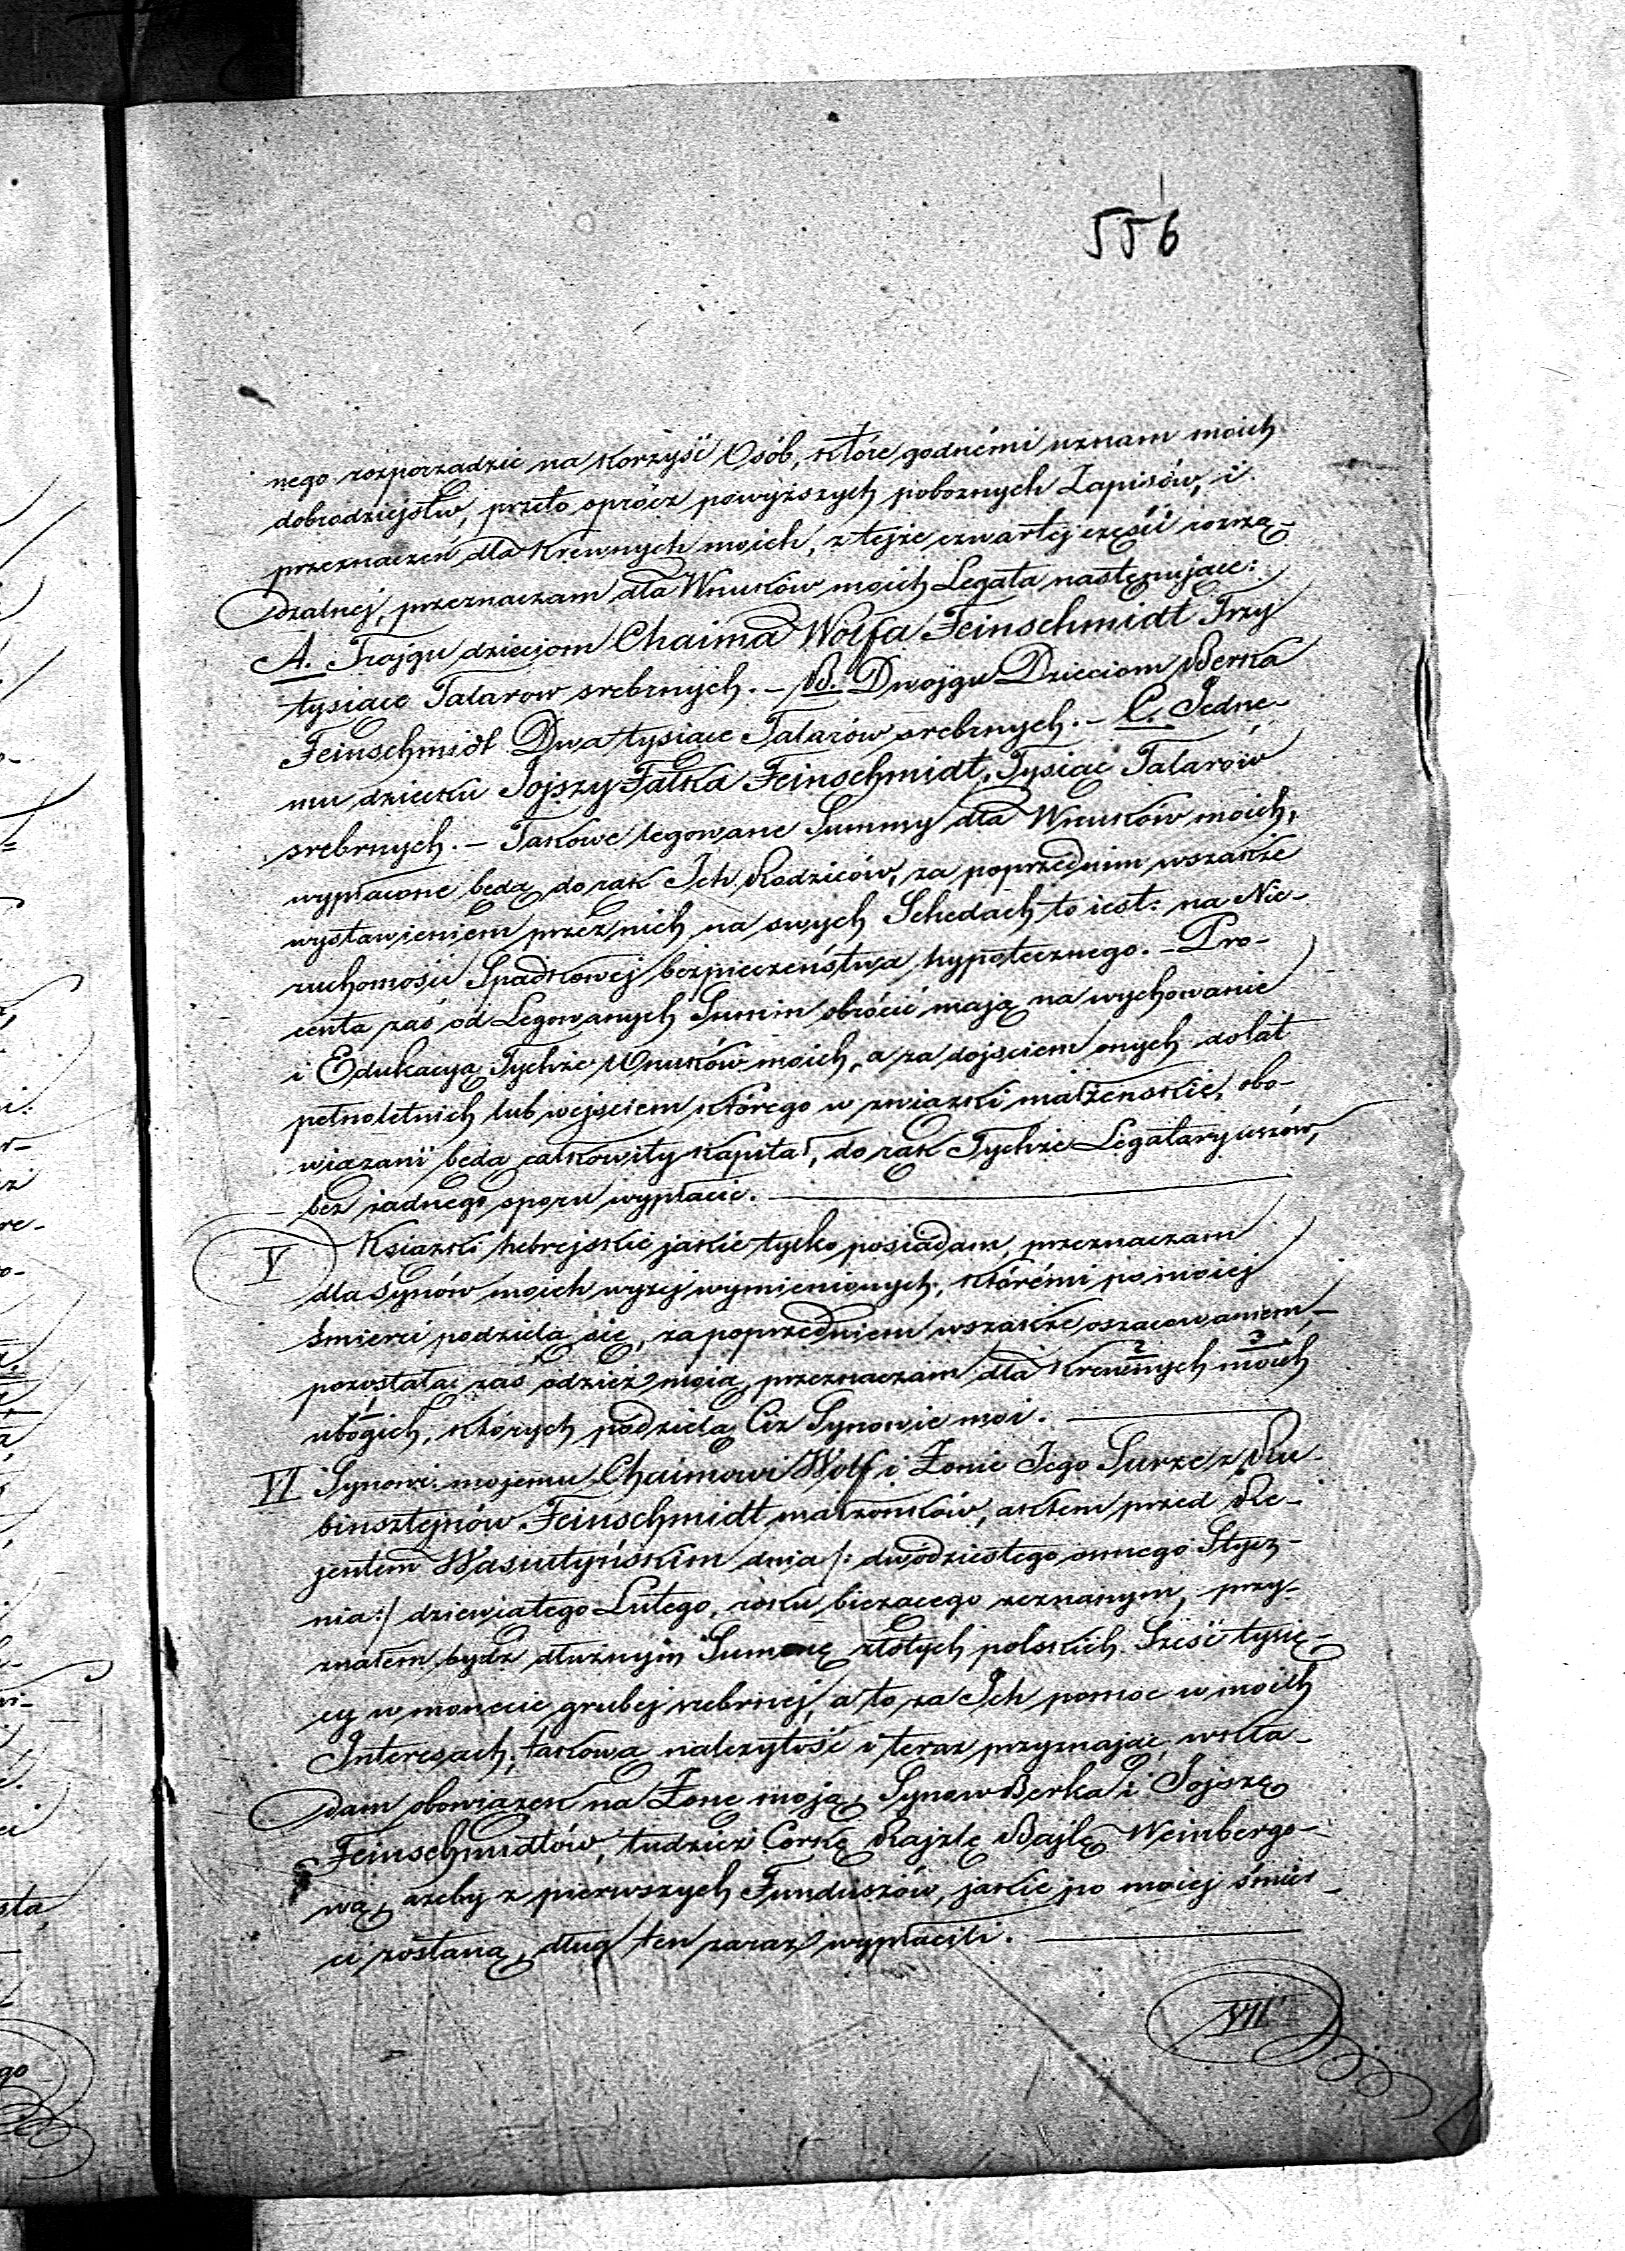 556
nego rozporządzić na korzyść Osób, które godnémi uznam moich
dobrodziejstw, przeto oprócz powyższych pobożnych Zapisów, i
przeznaczeń dla Krewnych moich, z tejże czwartej części rozrzą-
dzalnej, przeznaczam dla Wnuków moich Legata następujące:
A. Trojgu dzieciom Chaima Wolfa Feinschmidt Trzy
tysiące Talarow srebrnych. – B. Dwojgu Dzieciom Berka
Feinschmidt Dwa tysiące Talarów srebrnych. – C. Jedne-
mu dziecku Jojszy Falka Feinschmidt, Tysiąc Talarów
srebrnych. – Takowe legowane Summy dla Wnuków moich,
wypłacone będą do rąk Ich Rodziców, za poprzednim wszakże
wystawieniem przez nich na swych Schedach to iest: na Nie-
ruchomości Spadkowej bezpieczeństwa hypotecznego. – Pro-
centa zaś od Legowanych Summ obrócić mają na wychowanie
i Edukacyą Tychże Wnuków moich, a za dojściem onych do lat
pełnoletnich lub wejściem którego w związki małżeńskie, obo-
wiązani będą całkowity Kapitał, do rąk Tychże Legataryuszów,
bez żadnego oporu wypłacić.
V Książki hebrejskie jakie tylko posiadam, przeznaczam
dla synów moich wyżej wymienionych, którémi po moiej
śmierci podzielą się, za poprzedniem wszakże oszacowaniem, –
pozostałą zaś odzież moią, przeznaczam dla Krewnych moich
2 3
ubogich, których podzielą Ciż Synowie moi.
1
VI Synowi mojemu Chaimowi Wolf i Żonie Jego Surze z Ru-
binsztejnów Feinschmidt małżonków, aktem przed Re-
jentem Wasiutyńskim dnia /: dwódziestego ósmego Stycz-
nia :/ dziewiątego Lutego, roku bieżącego zeznanym, przy-
znałem bydź dłużnym Summę złotych polskich Sześć tysię-
cy w monecie grubej srebrnej, a to za Ich pomoc w moich
Interesach, takową należytość i teraz przyznając, wkła-
dam obowiązek na Żonę moją, Synow Berka i Jojszę
Feinschmidtów, tudzież Corkę Rajzlę Bajlę Weinbergo-
wą, ażeby z pierwszych Funduszów, jakie po moiej śmier-
ci zostaną, dług ten zaraz wypłacili.
VII